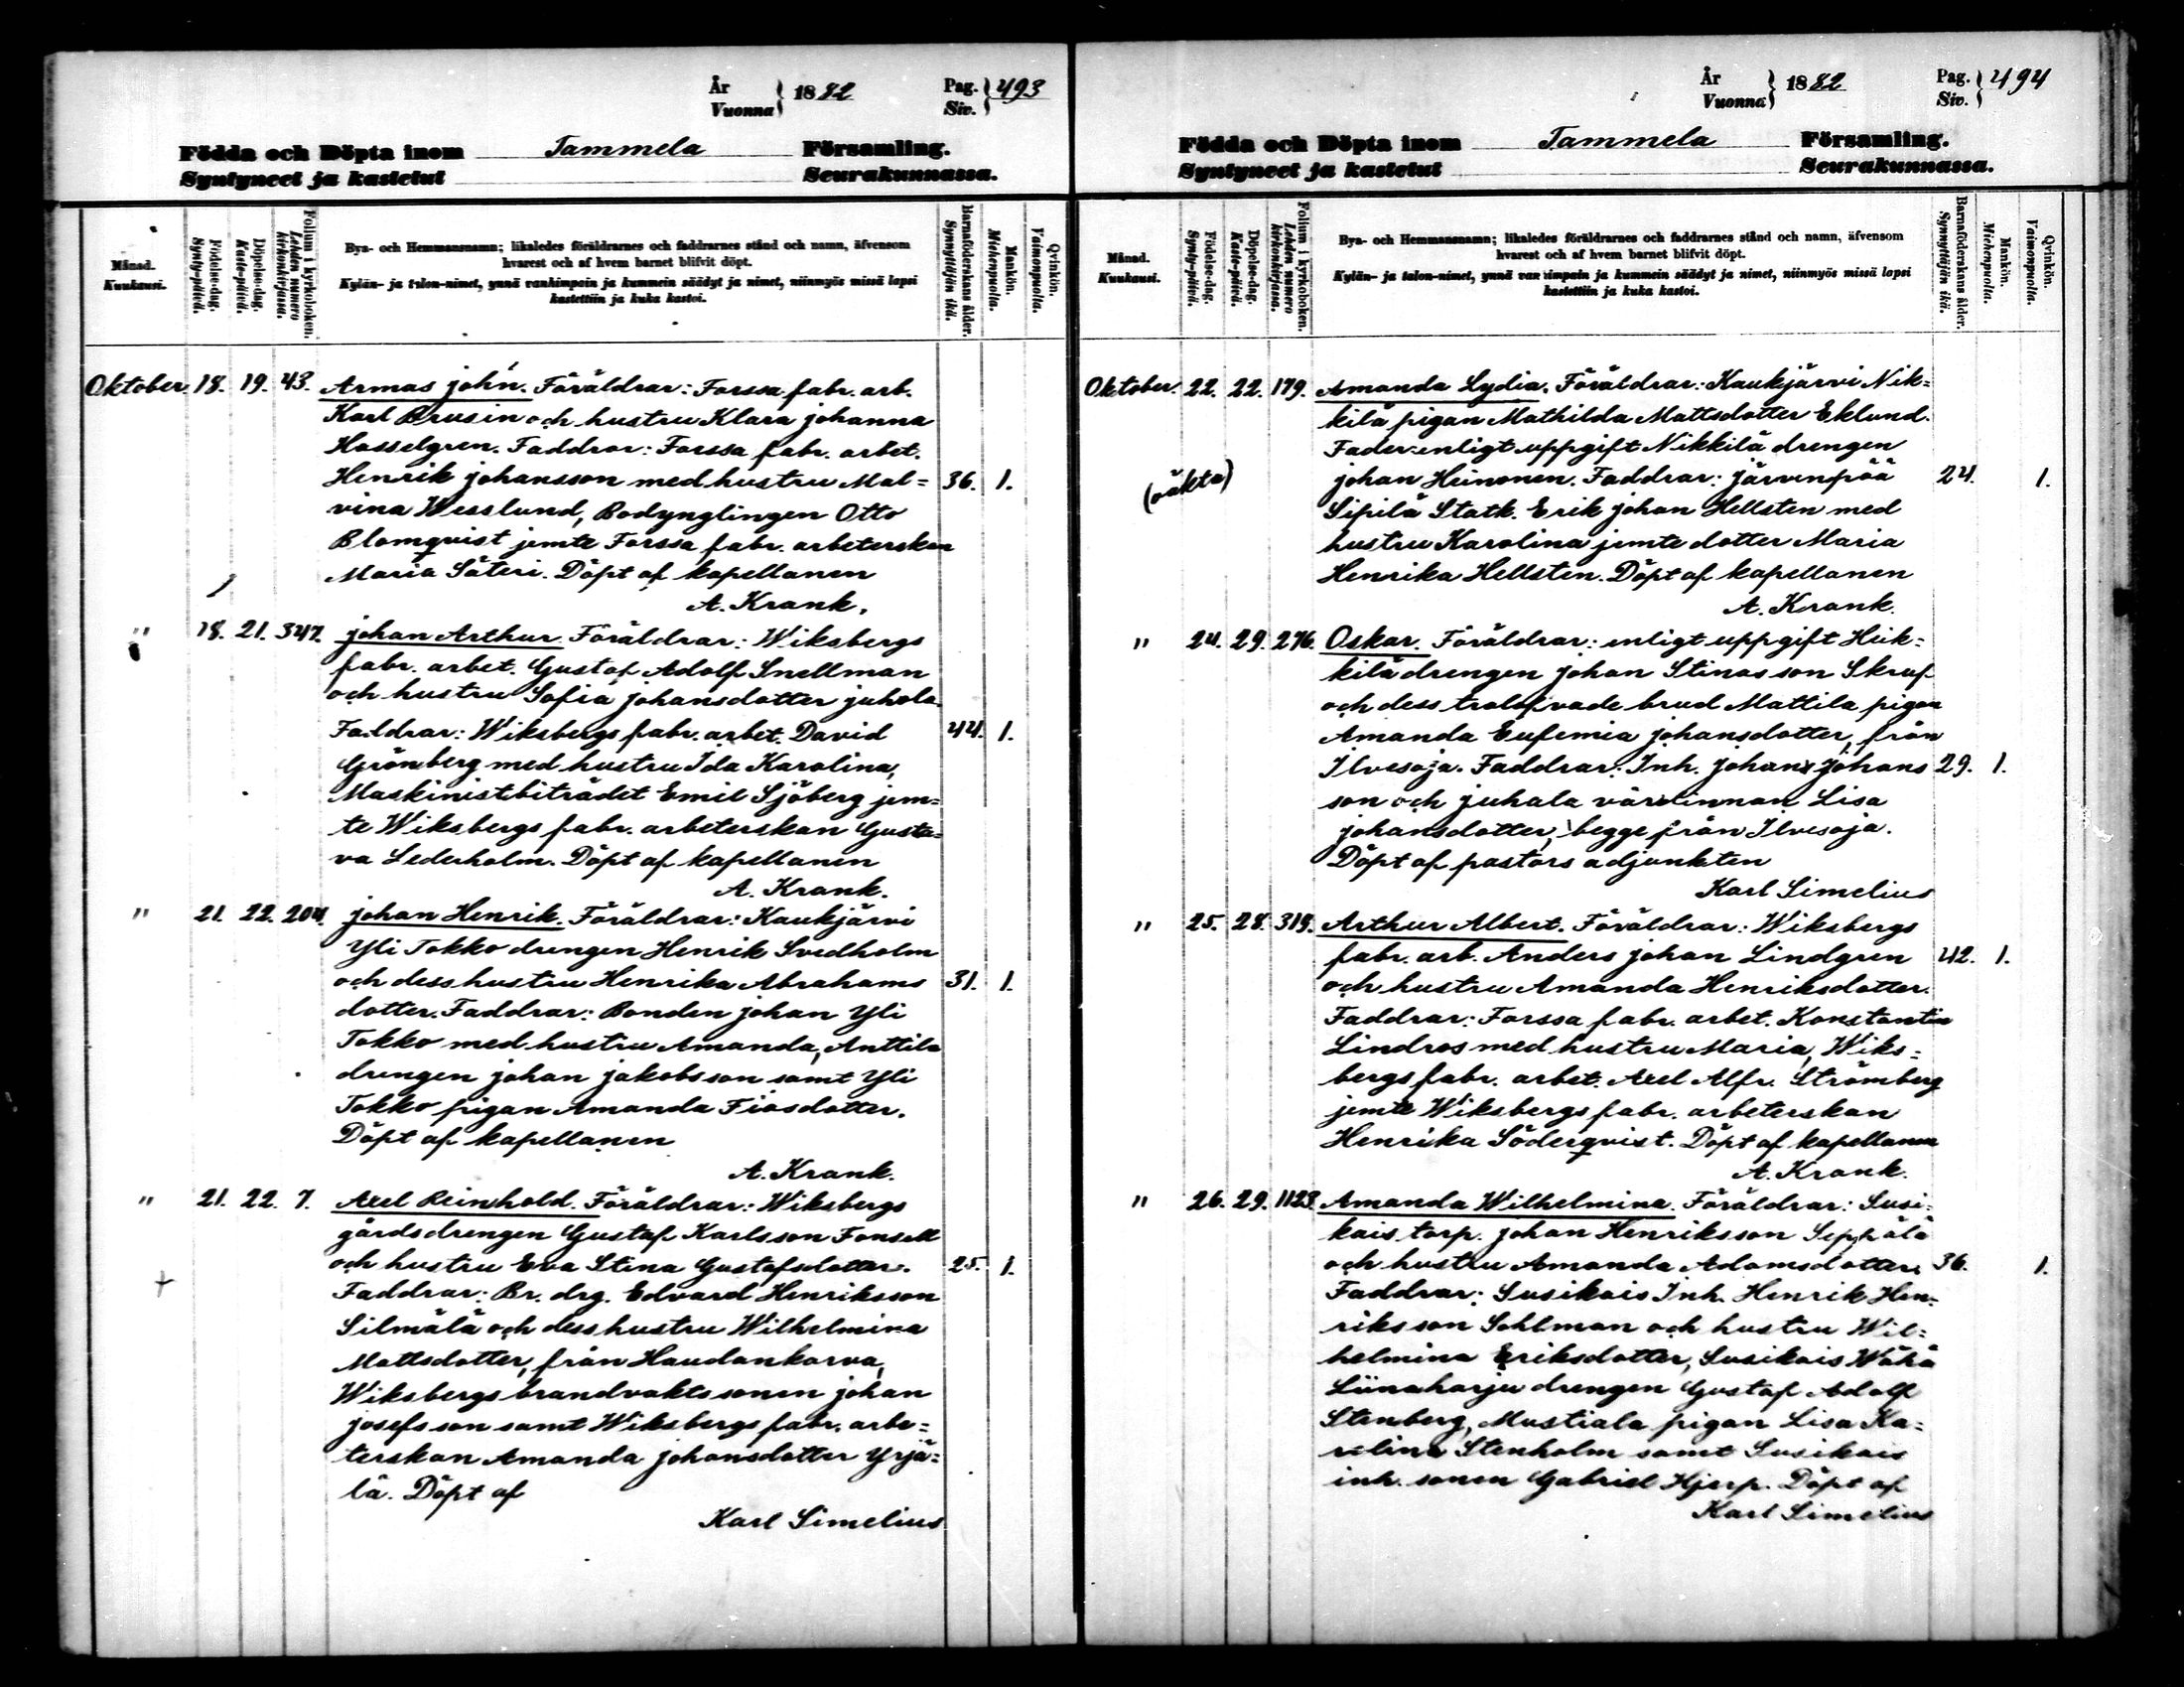 År
Vuonna } 1882 Pag.
Siv. } 493
Födda och Döpta inom Tammela Församling.
Syntyneet ja kastetut Seurakunnassa.
Månad.
Kuukausi.
Födelse-dag.
Synty-päivä.
Döpelse-dag.
Kaste-päivä.
Folium i kyrkoboken.
Lehden numero
kirkonkirjassa.
Bya- och Hemmansnamn; likaledes föräldrarnes och faddrarnes stånd och namn, äfvensom
hvarest och af hvem barnet blifvit döpt.
Kylän- ja talon-nimet, ynnä vanhimpain ja kummein säädyt ja nimet, niinmyös missä lapsi
kastettiin ja kuka kastoi.
Barnaföderskans ålder.
Synnyttäjän ikä.
Mankön.
Miehenpuolta.
Qvinkön.
Vaimonpuolta.
Oktober. 18. 19. 43. Armas John. Föräldrar: Forssa fabr. arb.
Karl Brusin och hustru Klara Johanna
Hasselgren. Faddrar: Forssa fabr. arbet.
Henrik Johansson med hustru Mal= 36. 1.
vina Wesslund, Bodynglingen Otto
Blomqvist jemte Forssa fabr. arbeterskan
Maria Säteri. Döpt af kapellanen
A. Krank.
" 18. 21. 347. Johan Arthur. Föräldrar: Wiksbergs
fabr. arbet. Gustaf Adolf Snellman
och hustru Sofia Johansdotter Juhola.
Faddrar: Wiksbergs fabr. arbet. David 44. 1.
Grönberg med hustru Ida Karolina,
Maskinistbiträdet Emil Sjöberg jem=
te Wiksbergs fabr. arbeterskan Gusta=
va Lederholm. Döpt af kapellanen
A. Krank.
" 21. 22. 204. Johan Henrik. Föräldrar: Kaukjärvi
Yli Tokko drengen Henrik Svedholm
och dess hustru Henrika Abrahams 31. 1.
dotter. Faddrar: Bonden Johan Yli
Tokko med hustru Amanda, Anttila
drengen Johan Jakobsson samt Yli
Tokko pigan Amanda Fiasdotter.
Döpt af kapellanen
A. Krank.
" 21. 22. 7. Axel Reinhold. Föräldrar: Wiksbergs
gårdsdrengen Gustaf Karlsson Fonsell
och hustru Eva Stina Gustafsdotter. 25. 1.
Faddrar: Br. drg. Edvard Henriksson
Silmälä och dess hustru Wilhelmina
Mattsdotter, från Haudankorva,
Wiksbergs brandvaktssonen Johan
Josefsson samt Wiksbergs fabr. arbe=
terskan Amanda Johansdotter Yrjä=
lä. Döpt af
Karl Simelius
År
Vuonna } 1882 Pag.
Siv. } 494
Födda och Döpta inom Tammela Församling.
Syntyneet ja kastetut Seurakunnassa.
Månad.
Kuukausi.
Födelse-dag.
Synty-päivä.
Döpelse-dag.
Kaste-päivä.
Folium i kyrkoboken.
Lehden numero
kirkonkirjassa.
Bya- och Hemmansnamn; likaledes föräldrarnes och faddrarnes stånd och namn, äfvensom
hvarest och af hvem barnet blifvit döpt.
Kylän- ja talon-nimet, ynnä vanhimpain ja kummein säädyt ja nimet, niinmyös missä lapsi
kastettiin ja kuka kastoi.
Barnaföderskans ålder.
Synnyttäjän ikä.
Mankön.
Miehenpuolta.
Qvinkön.
Vaimonpuolta.
Oktober. 22. 22. 179. Amanda Lydia. Föräldrar: Kaukjärvi Nik=
kilä pigan Mathilda Mattsdotter Eklund.
Fader: enligt uppgift Nikkilä drengen
(oäkta) Johan Heinonen. Faddrar: Järvenpää 24. 1.
Sipilä Statk. Erik Johan Hellsten med
hustru Karolina jemte dotter Maria
Henrika Hellsten. Döpt af kapellanen
A. Krank.
" 24. 29. 276. Oskar. Föräldrar: enligt uppgift Heik=
kilä drengen Johan Stinasson Skruf
och dess trolofvade brud Mattila pigan
Amanda Eufemia Johansdotter, från
Ilvesoja. Faddrar: Inh. Johan Johans 29. 1.
son och Juhala värdinnan Lisa
Johansdotter, begge från Ilvesoja.
Döpt af pastors adjunkten
Karl Simelius
" 25. 28. 319. Arthur Albert. Föräldrar: Wiksbergs
fabr. arb. Anders Johan Lindgren 42. 1.
och hustru Amanda Henriksdotter.
Faddrar: Forssa fabr. arbet. Konstantin
Lindros med hustru Maria, Wiks=
bergs fabr. arbet. Axel Alfr. Strömberg
jemte Wiksbergs fabr. arbeterskan
Henrika Söderqvist. Döpt af kapellanen
A. Krank.
" 26. 29. 1123. Amanda Wilhelmina. Föräldrar: Susi=
kais torp. Johan Henriksson Seppälä
och hustru Amanda Adamsdotter. 36. 1.
Faddrar: Susikais Inh. Henrik Hen=
riksson Sohlman och hustru Wil=
helmina Eriksdotter, Susikais Wähä
Liinaharju drengen Gustaf Adolf
Stenberg, Mustiala pigan Lisa Ka=
rolina Stenholm samt Susikais
inh. sonen Gabriel Hjerp. Döpt af
Karl Simelius